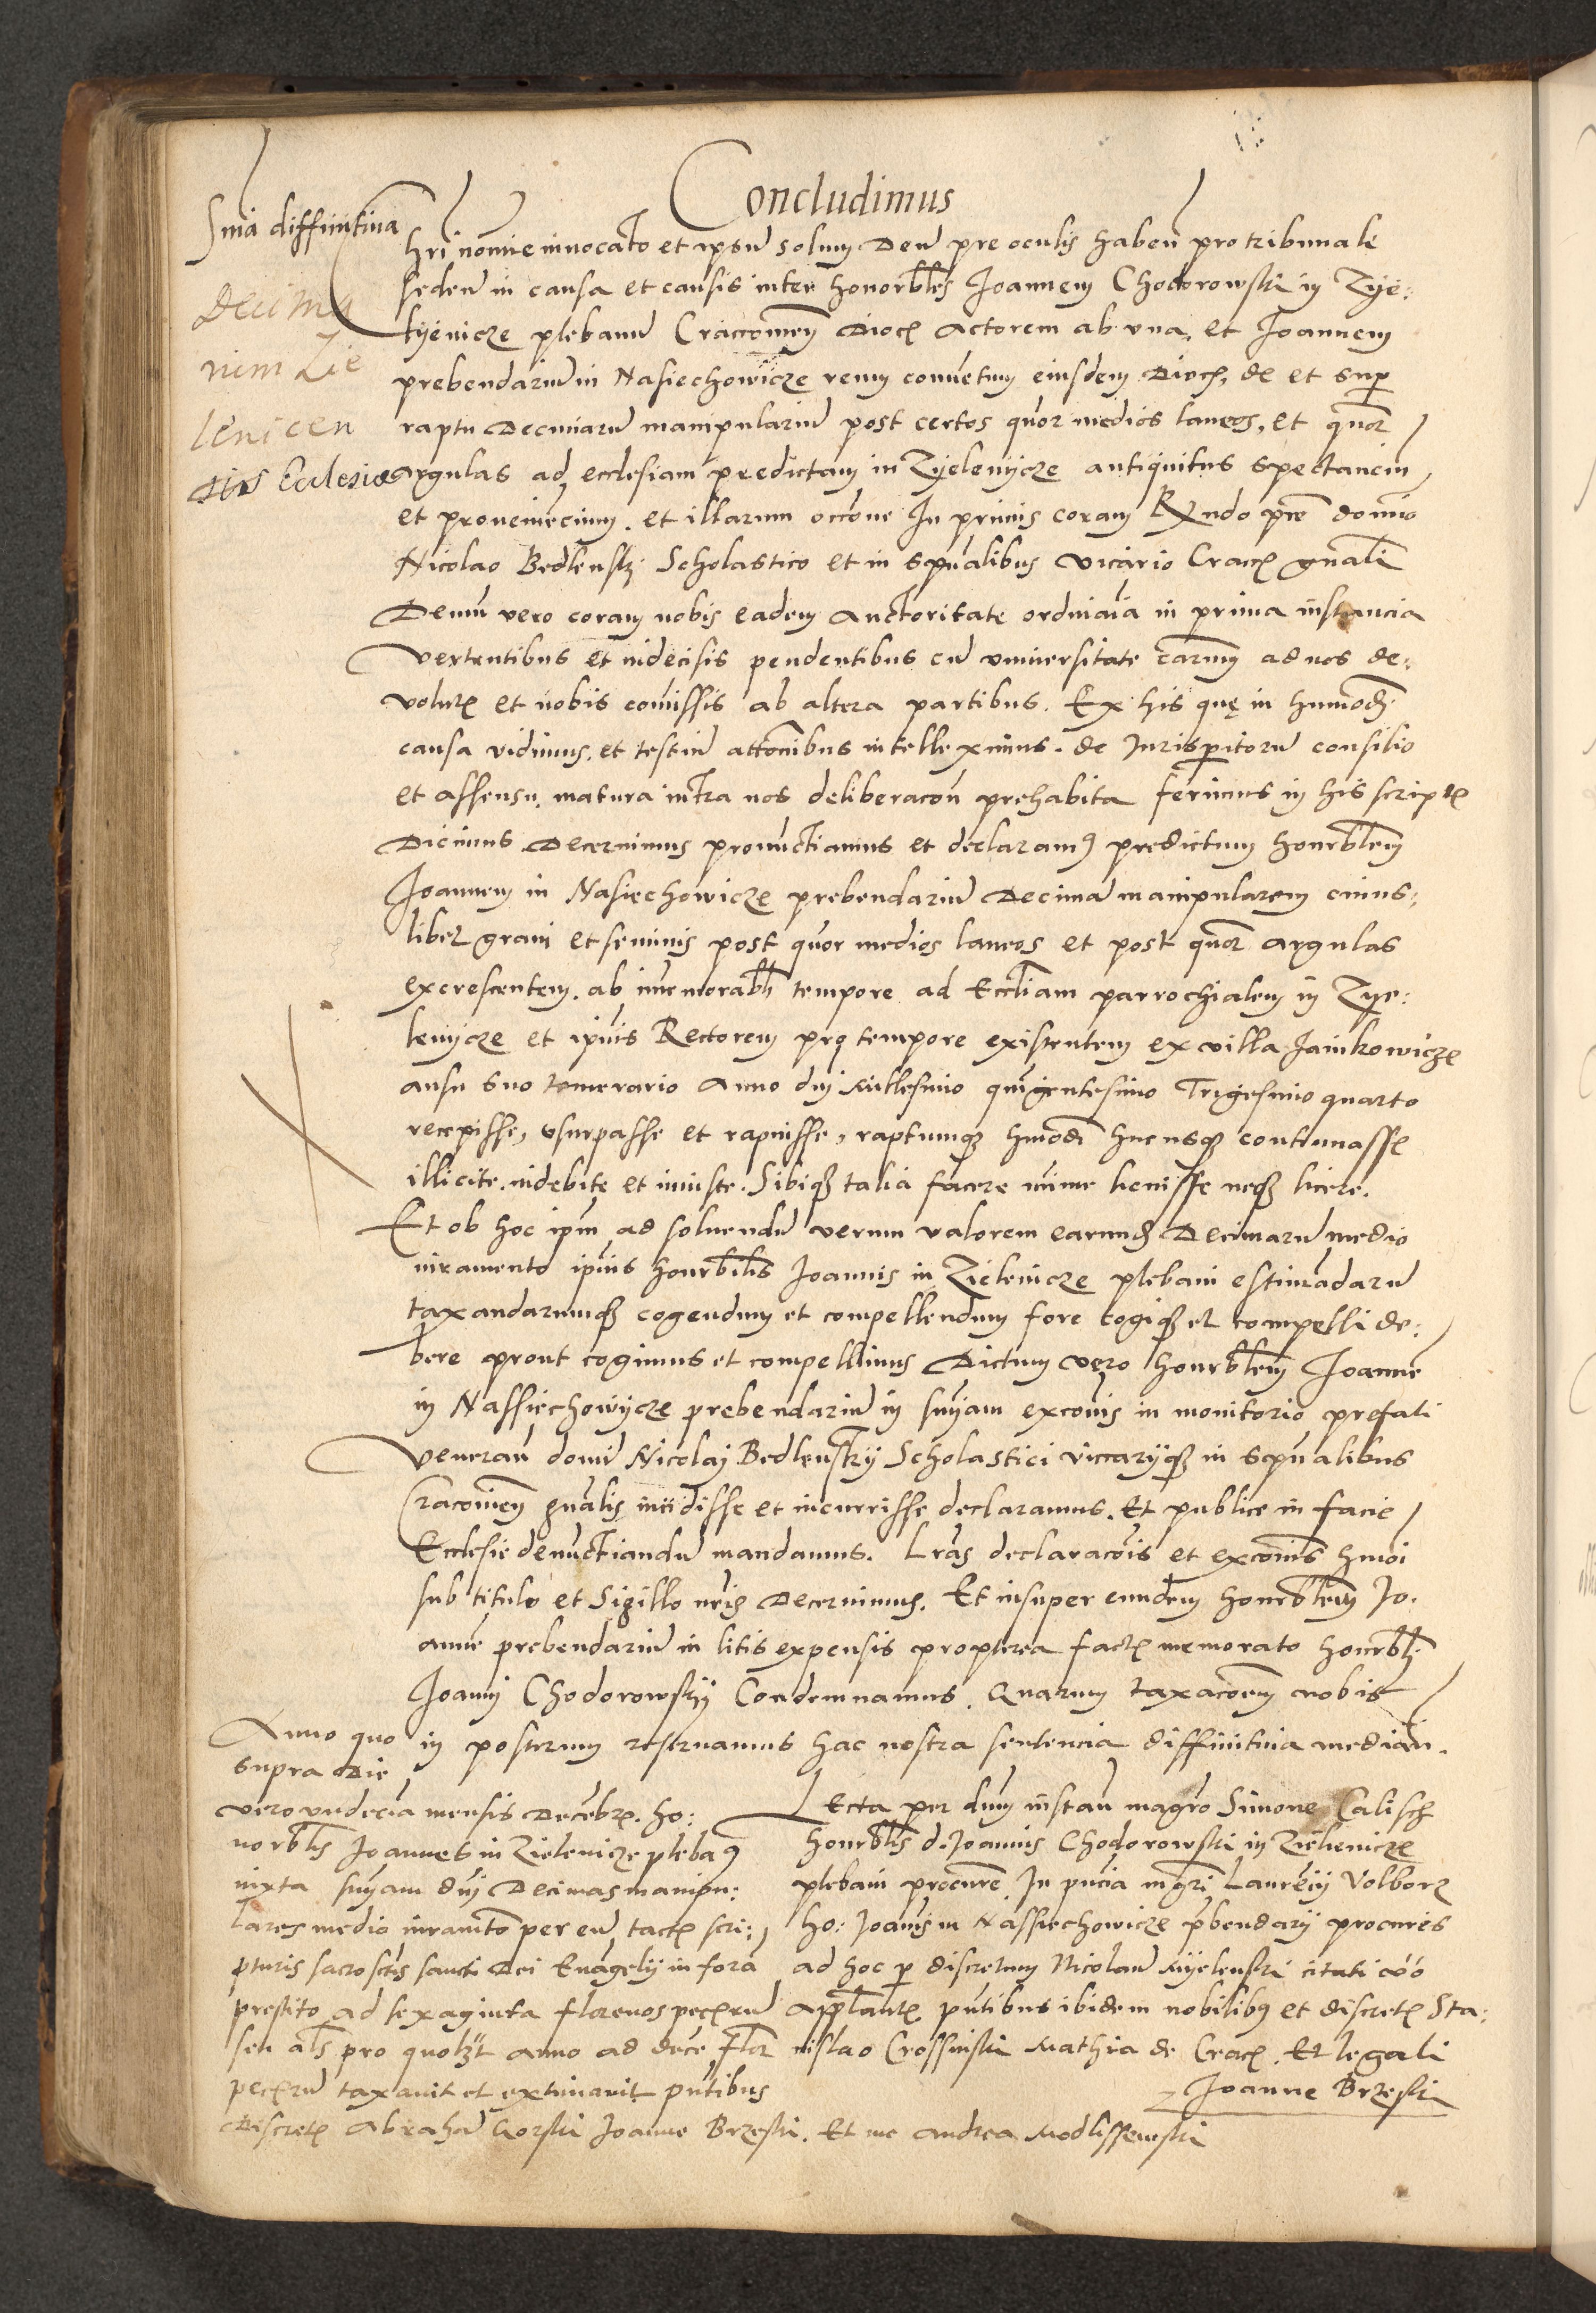 Concludimus
Snia diffinitiva
Decima
rum Zie
lenicen
sis Ecclesiae
Chri nomie invocato et ipsu solum Deu pre oculis haben pro tribunale
seden in causa et causis inter honorbles Joannem Chodorowski in Zye:
lyenicze plebanu Cracovien Dioc actorem ab una, et Joannem
prebendariu in Nasiechowicze reum conuetum eiusdem Dioc, de et sup
raptu Decimaru manipulariu post certos quor medios laneos, et quor
argulas ad ecclesiam predictam in Zyelenycze antiquitus spectancium
et proveniencium. et illarum occone In primis coram Rndo pre domino
Nicolao Bedlensky Scholastico et in spualibus vicario Crac gnali
Demu vero coram nobis eadem auctoritate ordinaia in prima instancia
vertentibus et indecisis pendentibus cu universitate carum ad nos de:
volut et nobis comissis ab altera partibus. Ex his quę in hmodi
causa vidimus, et testiu attonibus intelleximus. de Jurisperitoru consilio
et assensu, matura intra nos deliberacon prehabita ferimus in his script
Dicimus Decernimus pronuctiamus et declaramus predictum honrblem
Joannem in Nasiechowicze prebendariu Decima manipularem cuius:
libet grani et seminis post quor medios laneos et post quor argulas
excrescentem. ab immemorabli tempore ad Eccliam parrochialem in Zye:
lenycze et ipius Rectorem pro tempore existentem ex villa Jankowicze
ausu suo temerario Anno dni Millesimo quingentesimo Trigesimo quarto
recepisse, usurpasse et rapuisse, raptumq hmodi hucusq continuasse
illicite. indebite et iniuste. Sibiq talia facere minime licuisse neq licere.
Et ob hoc ipm ad solvendu verum valorem earund Decimaru medio
iuramento ipius honrbilis Joannis in Zielenicze plebani estimadaru
taxandarumq cogendum et compellendum fore cogiq et compelli de:
bere prout cogimus et compellimus Dictum vero honrblem Joanne
in Nassiechowycze prebendariu in snyam excois in monitorio prefati
veneran domi Nicolaj Bedlensky Scholastici vicaryq in spualibus
Cracovien gnalis incidisse et incurrisse declaramus. Et publice in facie
Ecclesie denuctiandu mandamus. Lras declaracois et excois hmoi
sub titulo et Sigillo nris Decernimus. Et insuper eundem honrblem Jo.
anne prebendariu in litis expensis propterea fact memorato honrbli
Joanni Chodorowsky Condemnamus. Quarum taxacoem nobis
in posterum reservamus hac nostra sentencia diffinitiva median.
Anno quo
supra Die
vero undecia mensis Decebr. ho:
norblis Joannes in Zielenicze plebanus
iuxta snyam dni Decimas manipu:
lares medio iuramto per eu tact scri:
pturis sacroscts sancti Dei Evagely in fora
prestito ad sexaginta florenos pecuru
seu als pro quolzt anno ad dece flor
pecuru taxavit et extimavit pntibus
Discret Abraha Gorski Joanne Brzeski. Et me Andrea Modlissewski
Lecta per dnm instan magro Simone Calisch
honrblis d. Joannis Chodorowski in Zielienicze
plebani procure In pncia mgri Laureciy Volborz
ho: Joanis in Nassiechowicze pbendary procuris
ad hoc p discretum Nicolau Myelenski citati
applante pntibus ibidem nobilibus et discret Sta:
nislao Crossinski Mathia de Crac. Et legali
Joanne Brzeski